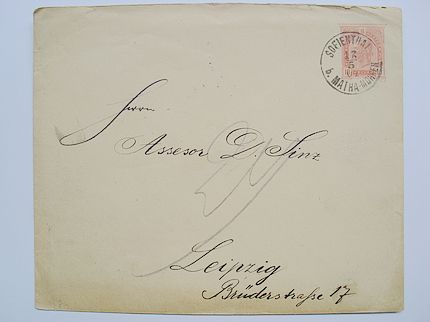 SOFIENTHAL
13
5
b. MATHA-MÖREN
Herrn
Assesor D. Sinz
Leipzig
Brüderstraße 17